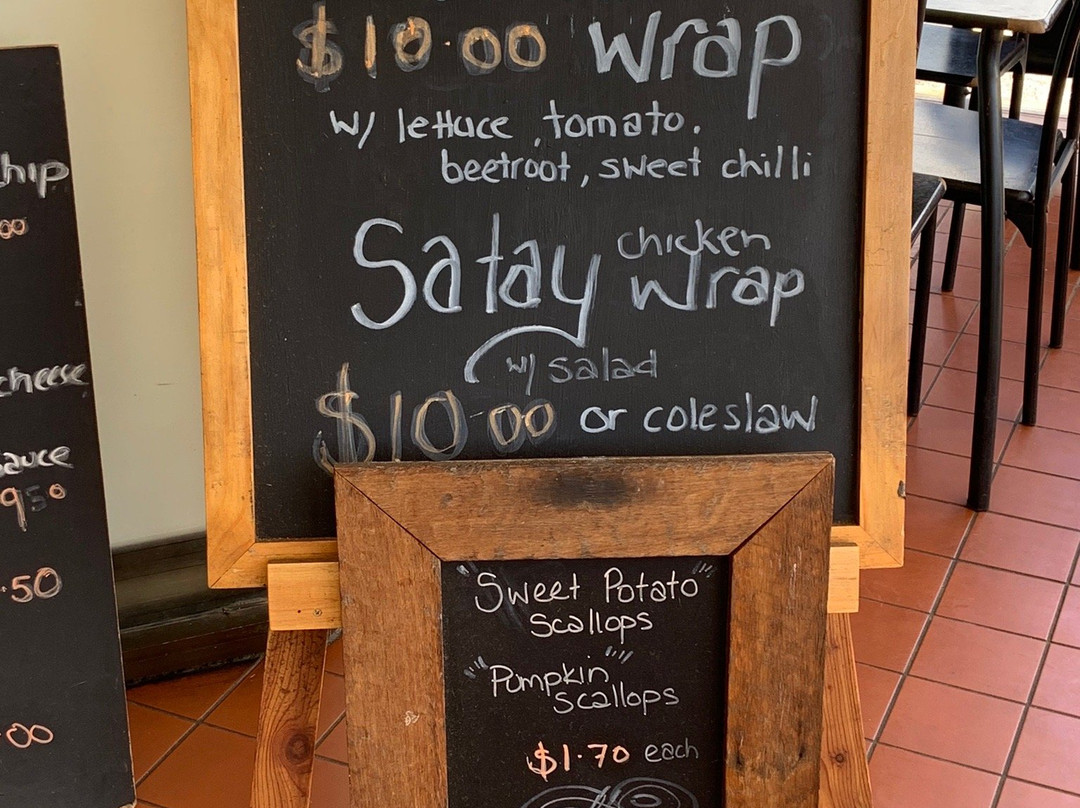 $10.00 Wrap
w/ lettuce, tomato.
beetroot, sweet chilli
Satay chicken
wrap
w/ salad
$10.00 or coleslaw
"Sweet Potato"
Scallops
"Pumpkin"
Scallops
$1.70 each
hip
00
cheese
auce
950
.50
.00